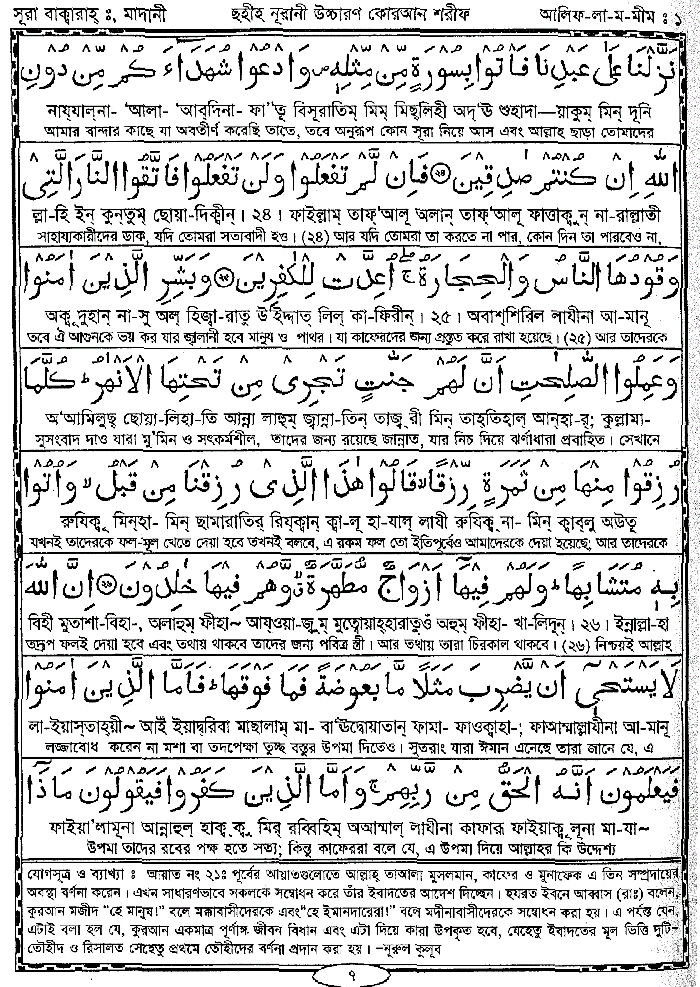 সূরা বাক্বারাহ্ ঃ, মাদানী ছহীহ্ নূরানী উচ্চারণ কোরআন শরীফ আলিফ-লা-ম-মীম ঃ ১
نَزَّلْنَا عَلٰى عَبْدِنَا فَاْتُوْا بِسُوْرَةٍ مِّنْ مِّثْلِهٖ وَادْعُوْا شُهَدَآءَكُمْ مِّنْ دُوْنِ
নায্যাল্না- ‘আলা- ‘আব্দিনা- ফা’তূ বিসূরাতিম্ মিম্ মিছ্লিহী অদ্‘ঊ শুহাদা—য়াকুম্ মিন্ দূনি
আমার বান্দার কাছে যা অবতীর্ণ করেছি তাতে, তবে অনুরূপ কোন সূরা নিয়ে আস এবং আল্লাহ ছাড়া তোমাদের
اللهِ اِنْ كُنْتُمْ صٰدِقِيْنَ ﴿٢٤﴾ فَاِنْ لَّمْ تَفْعَلُوْا وَلَنْ تَفْعَلُوْا فَاتَّقُوا النَّارَ الَّتِىْ
ল্লা-হি ইন্ কুন্তুম্ ছোয়া-দিক্বীন্। ২৪। ফাইল্লাম্ তাফ্‘আলূ অলান্ তাফ্‘আলূ ফাত্তাক্বুন্ না-রাল্লাতী
সাহায্যকারীদের ডাক, যদি তোমরা সত্যবাদী হও। (২৪) আর যদি তোমরা তা করতে না পার, কোন দিন তা পারবেও না,
وَقُوْدُهَا النَّاسُ وَالْحِجَارَةُ اُعِدَّتْ لِلْكٰفِرِيْنَ ﴿٢٥﴾ وَبَشِّرِ الَّذِيْنَ اٰمَنُوْا
অক্বূদুহান্ না-সু অল্ হিজ্বা-রাতু উ‘ইদ্দাত্ লিল্ কা-ফিরীন্। ২৫। অবাশ্শিরিল লাযীনা আ-মানূ
তবে ঐ আগুনকে ভয় কর যার জ্বালানী হবে মানুষ ও পাথর। যা কাফেরদের জন্য প্রস্তুত করে রাখা হয়েছে। (২৫) আর তাদেরকে
وَعَمِلُوا الصّٰلِحٰتِ اَنَّ لَهُمْ جَنّٰتٍ تَجْرِىْ مِنْ تَحْتِهَا الْاَنْهٰرُ كُلَّمَا
অ‘আমিলুছ্ ছোয়া-লিহা-তি আন্না লাহুম্ জ্বান্না-তিন্ তাজ্ব্রী মিন্ তাহ্তিহাল্ আন্হা-র্; কুল্লামা-
সুসংবাদ দাও যারা মু’মিন ও সৎকর্মশীল, তাদের জন্য রয়েছে জান্নাত, যার নিচ দিয়ে ঝর্ণাধারা প্রবাহিত। সেখানে
رُزِقُوْا مِنْهَا مِنْ ثَمَرَةٍ رِّزْقًا قَالُوْا هٰذَا الَّذِىْ رُزِقْنَا مِنْ قَبْلُ وَاُتُوْا
রুযিক্বূ মিন্হা- মিন্ ছামারাতির্ রিয্ক্বান্ ক্বা-লূ হা-যাল্ লাযী রুযিক্ব্না- মিন্ ক্বাব্লু অউতূ
যখনই তাদেরকে ফল-মূল খেতে দেয়া হবে তখনই বলবে, এ রকম ফল তো ইতিপূর্বেও আমাদেরকে দেয়া হয়েছে; আর তাদেরকে
بِهٖ مُتَشَابِهًا وَلَهُمْ فِيْهَآ اَزْوَاجٌ مُّطَهَّرَةٌ وَّهُمْ فِيْهَا خٰلِدُوْنَ ﴿٢٦﴾ اِنَّ اللهَ
বিহী মুতাশা-বিহা-, অলাহুম্ ফীহা~ আয্ওয়া-জ্বুম্ মুত্বোয়াহ্হারাতুওঁ অহুম্ ফীহা- খা-লিদূন্। ২৬। ইন্নাল্লা-হা
তদ্রূপ ফলই দেয়া হবে এবং তথায় থাকবে তাদের জন্য পবিত্র স্ত্রী। আর তথায় তারা চিরকাল থাকবে। (২৬) নিশ্চয়ই আল্লাহ
لَا يَسْتَحْىٖٓ اَنْ يَّضْرِبَ مَثَلًا مَّا بَعُوْضَةً فَمَا فَوْقَهَا فَاَمَّا الَّذِيْنَ اٰمَنُوْا
লা-ইয়াস্তাহ্য়ী~ আইঁ ইয়াদ্বরিবা মাছালাম্ মা- বা‘ঊদ্বোয়াতান্ ফামা- ফাওক্বাহা-; ফাআম্মাল্লাযীনা আ-মানূ
লজ্জাবোধ করেন না মশা বা তদপেক্ষা তুচ্ছ বস্তুর উপমা দিতেও। সুতরাং যারা ঈমান এনেছে তারা জানে যে, এ
فَيَعْلَمُوْنَ اَنَّهُ الْحَقُّ مِنْ رَّبِّهِمْ وَاَمَّا الَّذِيْنَ كَفَرُوْا فَيَقُوْلُوْنَ مَاذَآ
ফাইয়া’লামূনা আন্নাহুল্ হাক্ব্ক্বু মির্ রব্বিহিম্ অআম্মাল্ লাযীনা কাফারূ ফাইয়াক্বূলূনা মা-যা~
উপমা তাদের রবের পক্ষ হতে সত্য; কিন্তু কাফেররা বলে যে, এ উপমা দিয়ে আল্লাহর কি উদ্দেশ্য
যোগসূত্র ও ব্যাখ্যা ঃ আয়াত নং ২১ঃ পূর্বের আয়াতগুলোতে আল্লাহ্ তাআলা মুসলমান, কাফের ও মুনাফেক এ তিন সম্প্রদায়ের
অবস্থা বর্ণনা করেন। এখন সাধারণভাবে সকলকে সম্বোধন করে তাঁর ইবাদতের আদেশ দিচ্ছেন। হযরত ইবনে আব্বাস (রাঃ) বলেন,
কুরআন মজীদ “হে মানুষ!” বলে মক্কাবাসীদেরকে এবং“হে ইমানদারেরা!” বলে মদীনাবাসীদেরকে সম্বোধন করা হয়। এ পর্যন্ত যেন,
এটাই বলা হল যে, কুরআন একমাত্র পূর্ণাঙ্গ জীবন বিধান এবং এটা দিয়ে কারা উপকৃত হবে, যেহেতু ইবাদতের মূল ভিত্তি দুটি-
তৌহীদ ও রিসালত সেহেতু প্রথমে তৌহীদের বর্ণনা প্রদান করা হয়। –নূরুল কুলূব
৭